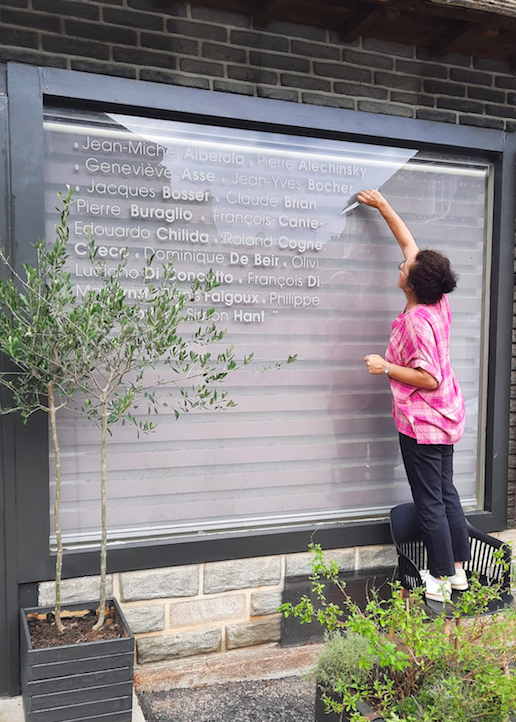 • Jean-Michel Alberola • Pierre Alechinsky
• Geneviève Asse • Jean-Yves Bocher
• Jacques Bosser • Claude Brian
Pierre Buraglio • François Cante-
Edouardo Chilida • Roland Cogne
Creco • Dominique De Beir • Olivi
Luciano Di Concetto • François Di
Falgoux • Philippe
Hant